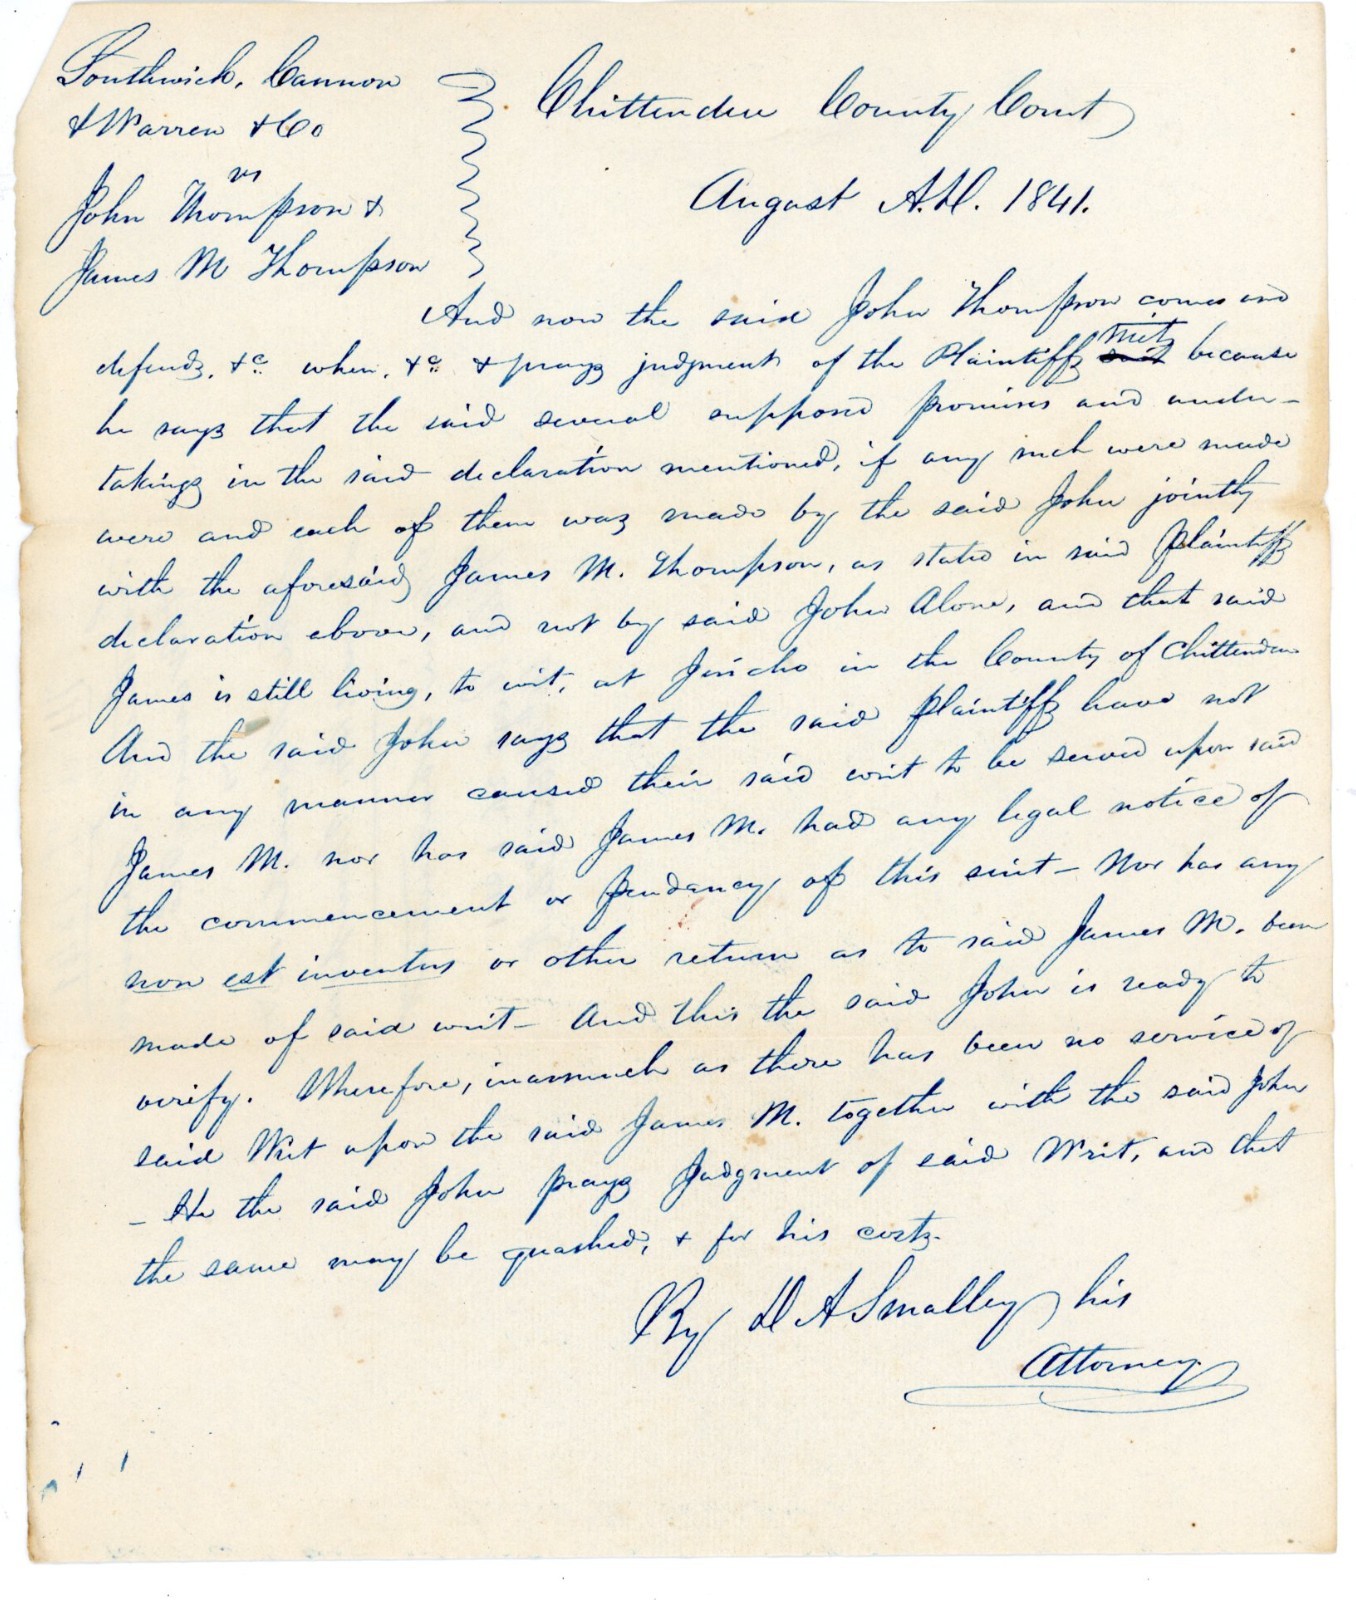 Southwick, Cannon
& Warren & Co
vs
John Thompson &
James M Thompson
Chittenden County Court
August A.D. 1841.
And now the said John Thompson comes and
defends, &c. when, &c. & prays judgment of the Plaintiffs Writ suit because
he says that the said several supposed promises and under-
takings in the said declaration mentioned, if any such were made
were and each of them was made by the said John jointly
with the aforesaid James M. Thompson, as stated in said Plaintiffs
declaration above, and not by said John Alone, and that said
James is still living, to wit, at Jericho in the County of Chittenden
And the said John says that the said Plaintiffs have not
in any manner caused their said writ to be served upon said
James M. nor has said James M. had any legal notice of
the commencement or pendancy of this suit - Nor has any
non est inventus or other return as to said James M. been
made of said writ - And this the said John is ready to
verify. Wherefore, inasmuch as there has been no service of
said Writ upon the said James M. together with the said John
- He the said John prays Judgment of said Writ, and that
the same may be quashed, & for his costs.
By D A Smalley his
Attorney